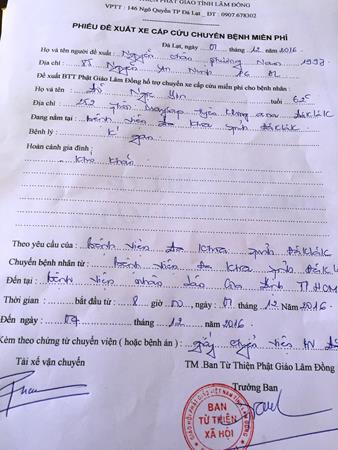 THIỆN PHẬT GIÁO TỈNH LÂM ĐỒNG
VPTT : 146 Ngô Quyền TP Đà Lạt _ ĐT : 0907.678302
PHIẾU ĐỀ XUẤT XE CẤP CỨU CHUYỂN BỆNH MIỄN PHÍ
Đà Lạt, ngày 01 tháng 12 2016
Họ và tên người đề xuất : Nguyễn Phương Nam 1993
Địa chỉ : Nguyễn An Ninh
Đề xuất BTT Phật Giáo Lâm Đồng hỗ trợ chuyển xe cấp cứu miễn phí cho bệnh nhân :
Họ và tên : Ngọc tuổi 62
Địa chỉ : 252 thôn
Đang nằm tại : Bệnh viện đa khoa tỉnh ĐăkLăk
Bệnh lý : K gan
Hoàn cảnh gia đình :
khó khăn
Theo yêu cầu của : Bệnh viện đa khoa tỉnh ĐăkLăk
Chuyển bệnh nhân từ : Bệnh viện đa khoa tỉnh ĐăkLăk
Đến tại : Bệnh viện nhân dân Gia Định TP.HCM
Thời gian : bắt đầu từ : 8 giờ 00, ngày : 01 tháng 12 Năm 2016
Đến ngày : tháng 12 năm 2016
Kèm theo chứng từ chuyển viện ( hoặc bệnh án ) : giấy chuyển viện
Tài xế vận chuyển
TM .Ban Từ Thiện Phật Giáo Lâm Đồng
Trưởng Ban
BAN
TỪ THIỆN
XÃ HỘI